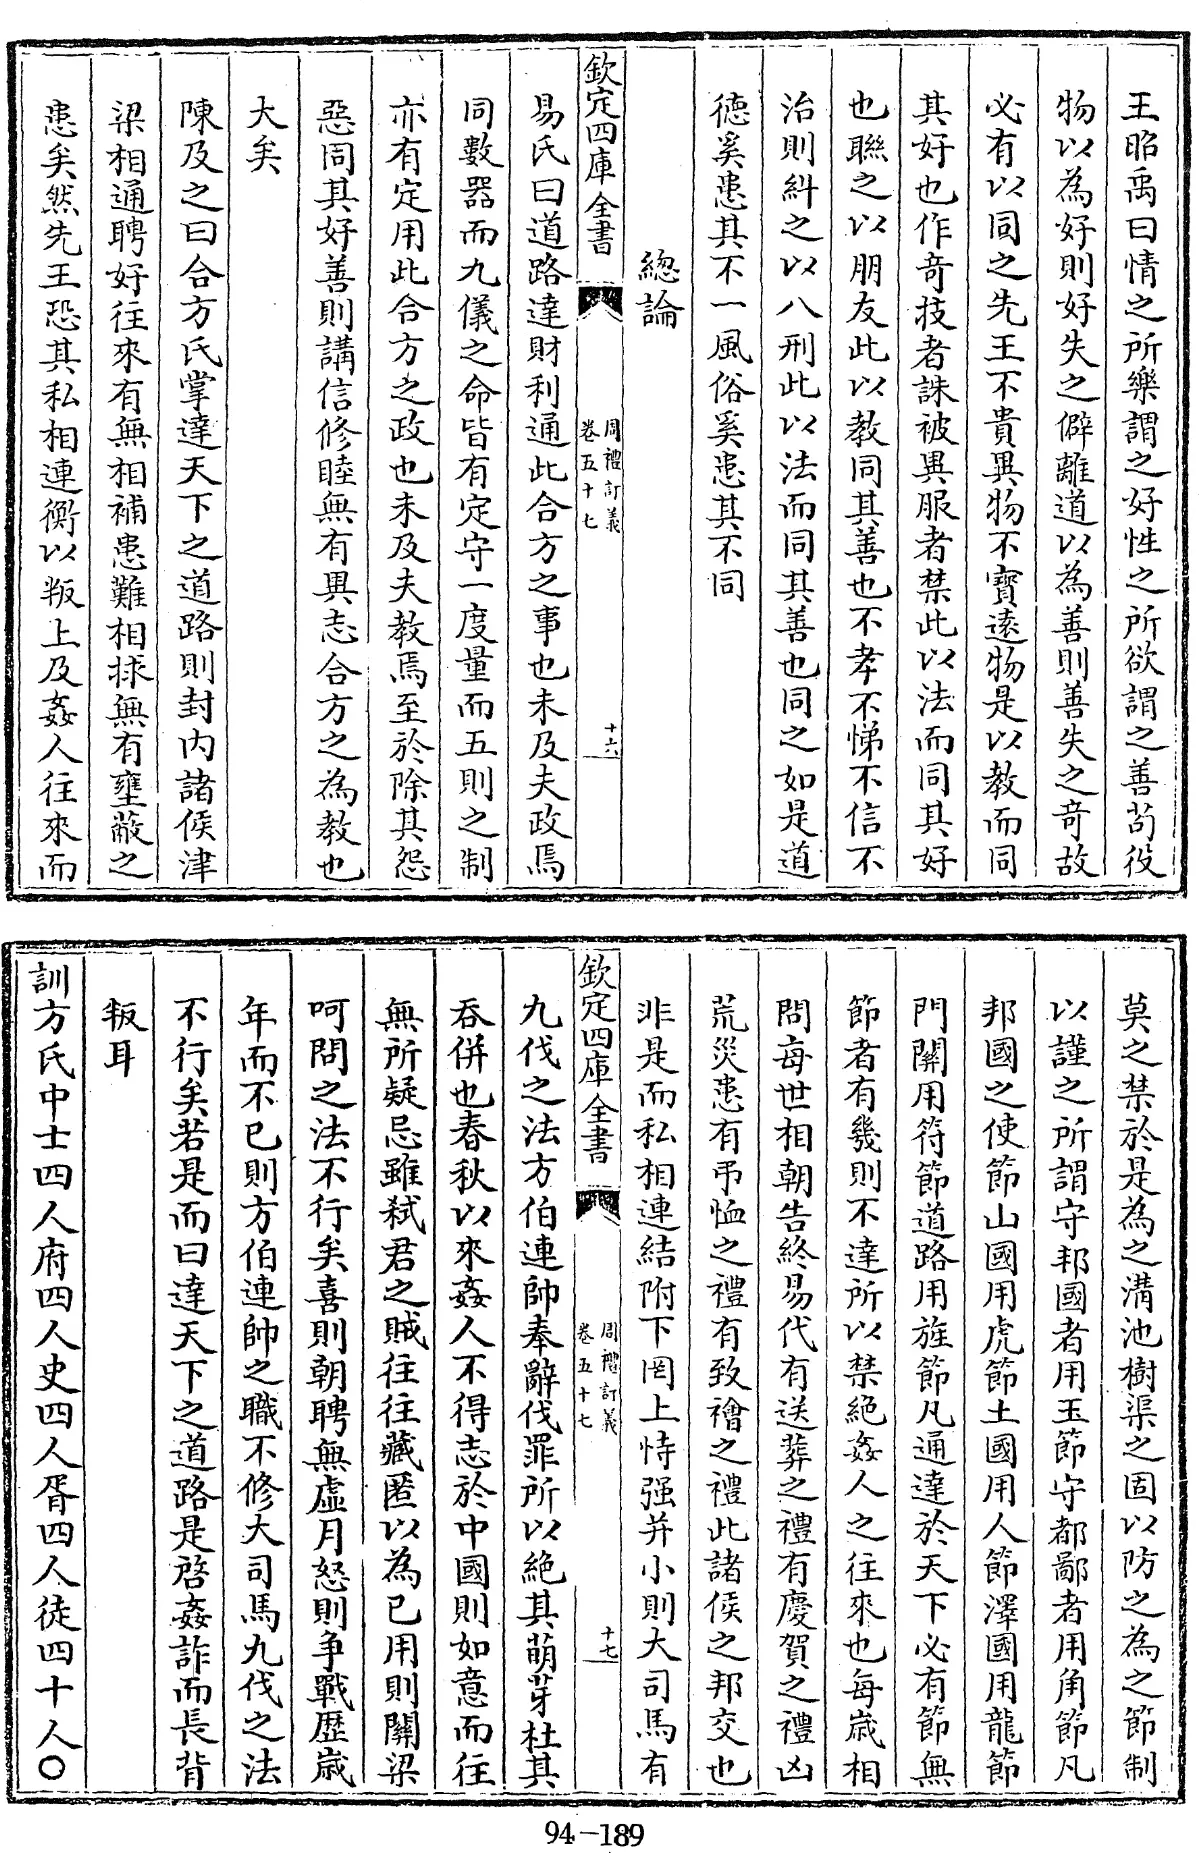 王昭禹曰情之所樂謂之好性之所欲謂之善苟役
物以為好則好失之僻離道以為善則善失之奇故
必有以同之先王不貴異物不寳逺物是以教而同
其好也作奇技者誅被異服者禁此以法而同其好
也聯之以朋友此以教同其善也不孝不悌不信不
治則糾之以八刑此以法而同其善也同之如是道
徳奚患其不一風俗奚患其不同
總論
欽定四庫全書
周禮訂義
卷五十七
十六
易氏曰道路達財利通此合方之事也未及夫政焉
同數器而九儀之命皆有定守一度量而五則之制
亦有定用此合方之政也未及夫教焉至於除其怨
惡同其好善則講信修睦無有異志合方之為教也
大矣
陳及之曰合方氏掌達天下之道路則封内諸侯津
梁相通聘好往來有無相補患難相捄無有壅蔽之
患矣然先王恐其私相連衡以叛上及姦人往來而
莫之禁於是為之溝池樹渠之固以防之為之節制
以謹之所謂守邦國者用玉節守都鄙者用角節凡
邦國之使節山國用虎節土國用人節澤國用龍節
門關用符節道路用旌節凡通達於天下必有節無
節者有幾則不達所以禁絶姦人之往來也每嵗相
問每世相朝告終易代有送葬之禮有慶賀之禮凶
荒災患有弔恤之禮有致禬之禮此諸侯之邦交也
非是而私相連結附下罔上恃强并小則大司馬有
欽定四庫全書
周禮訂義
卷五十七
十七
九伐之法方伯連帥奉辭伐罪所以絶其萌芽杜其
吞併也春秋以來姦人不得志於中國則如意而往
無所疑忌雖弑君之賊往往藏匿以為已用則關梁
呵問之法不行矣喜則朝聘無虛月怒則爭戰歴嵗
年而不已則方伯連帥之職不修大司馬九伐之法
不行矣若是而曰達天下之道路是啓姦詐而長背
叛耳
訓方氏中士四人府四人史四人胥四人徒四十人〇
94-189